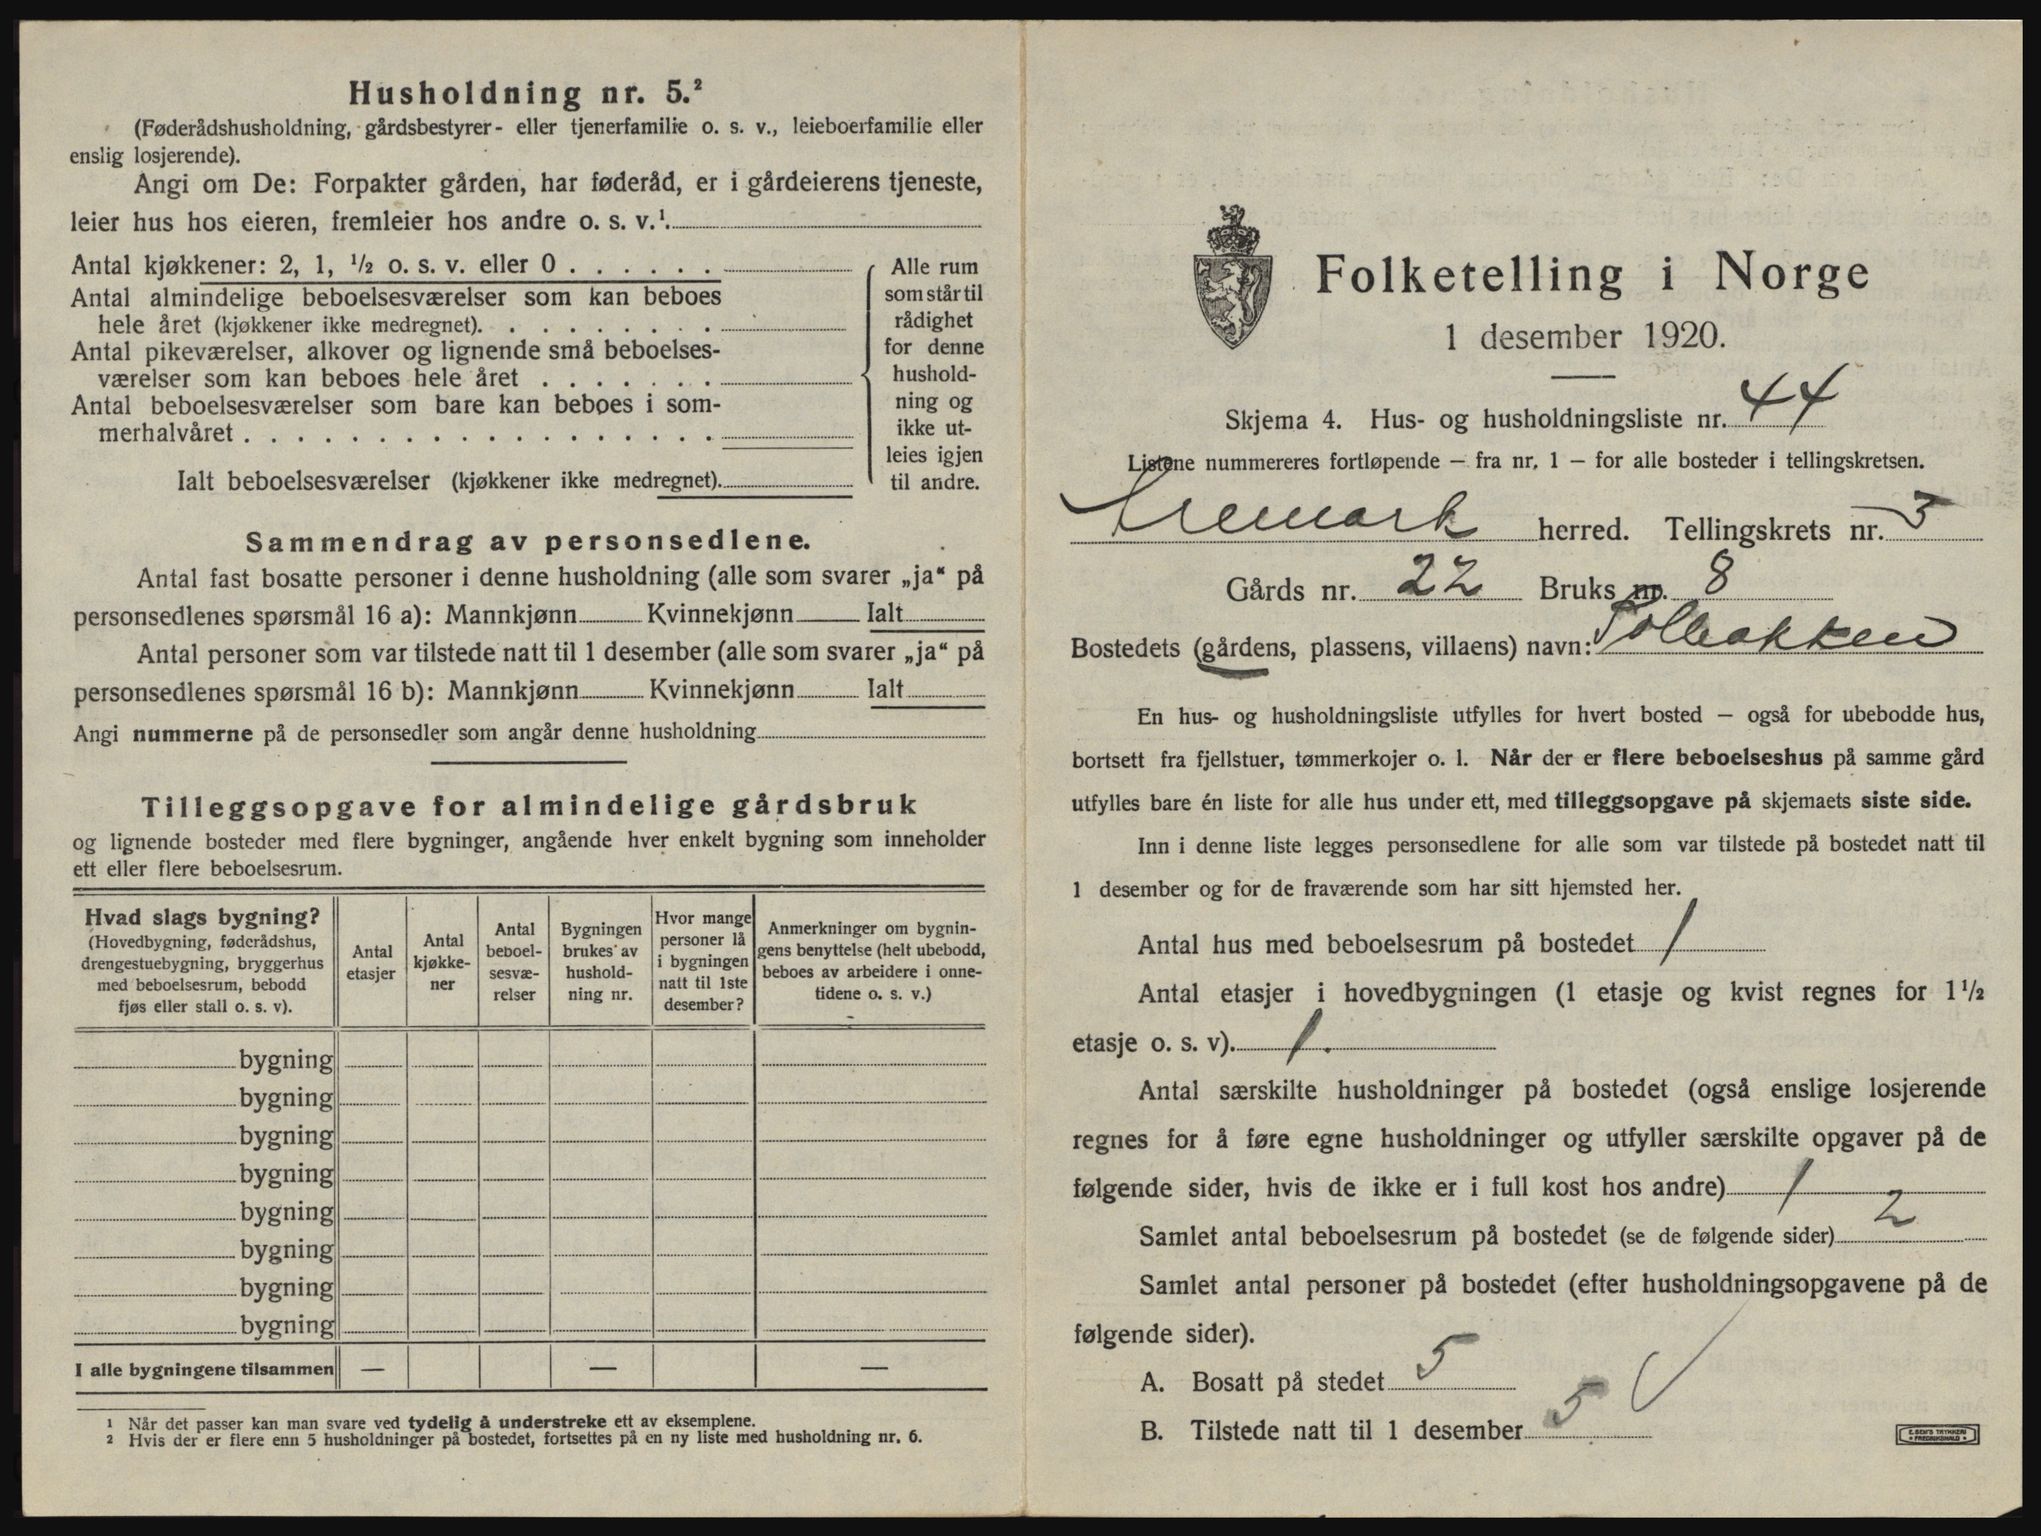 Husholdning nr. 5.²
(Føderådshusholdning, gårdsbestyrer- eller tjenerfamilie o. s. v., leieboerfamilie eller
enslig losjerende).
Angi om De: Forpakter gården, har føderåd, er i gårdeierens tjeneste,
leier hus hos eieren, fremleier hos andre o. s. v.¹.
Antal kjøkkener: 2, 1, ½ o. s. v. eller 0 . . . . . .
Antal almindelige beboelsesværelser som kan beboes
hele året (kjøkkener ikke medregnet). . . . . . . . .
Antal pikeværelser, alkover og lignende små beboelses-
værelser som kan beboes hele året . . . . . . .
Antal beboelsesværelser som bare kan beboes i som-
merhalvåret . . . . . . . . . . . . . . . . . .
Ialt beboelsesværelser (kjøkkener ikke medregnet).
Alle rum
som står til
rådighet
for denne
hushold-
ning og
ikke ut-
leies igjen
til andre.
Sammendrag av personsedlene.
Antal fast bosatte personer i denne husholdning (alle som svarer „ja“ på
personsedlenes spørsmål 16 a): Mannkjønn Kvinnekjønn Ialt
Antal personer som var tilstede natt til 1 desember (alle som svarer „ja“ på
personsedlenes spørsmål 16 b): Mannkjønn Kvinnekjønn Ialt
Angi nummerne på de personsedler som angår denne husholdning
Tilleggsopgave for almindelige gårdsbruk
og lignende bosteder med flere bygninger, angående hver enkelt bygning som inneholder
ett eller flere beboelsesrum.
Hvad slags bygning?
(Hovedbygning, føderådshus,
drengestuebygning, bryggerhus
med beboelsesrum, bebodd
fjøs eller stall o. s. v).
Antal
etasjer
Antal
kjøkke-
ner
Antal
beboel-
sesvæ-
relser
Bygningen
brukes av
hushold-
ning nr.
Hvor mange
personer lå
i bygningen
natt til 1ste
desember?
Anmerkninger om bygnin-
gens benyttelse (helt ubebodd,
beboes av arbeidere i onne-
tidene o. s. v.)
bygning
bygning
bygning
bygning
bygning
bygning
bygning
bygning
I alle bygningene tilsammen — — —
¹ Når det passer kan man svare ved tydelig å understreke ett av eksemplene.
² Hvis der er flere enn 5 husholdninger på bostedet, fortsettes på en ny liste med husholdning nr. 6.
Folketelling i Norge
1 desember 1920.
Skjema 4. Hus- og husholdningsliste nr. 44
Listene nummereres fortløpende — fra nr. 1 — for alle bosteder i tellingskretsen.
Aremark herred. Tellingskrets nr. 3
Gårds nr. 22 Bruks nr. 8
Bostedets (gårdens, plassens, villaens) navn: Tolbakken
En hus- og husholdningsliste utfylles for hvert bosted — også for ubebodde hus,
bortsett fra fjellstuer, tømmerkojer o. l. Når der er flere beboelseshus på samme gård
utfylles bare én liste for alle hus under ett, med tilleggsopgave på skjemaets siste side.
Inn i denne liste legges personsedlene for alle som var tilstede på bostedet natt til
1 desember og for de fraværende som har sitt hjemsted her.
Antal hus med beboelsesrum på bostedet 1
Antal etasjer i hovedbygningen (1 etasje og kvist regnes for 1½
etasje o. s. v). 1.
Antal særskilte husholdninger på bostedet (også enslige losjerende
regnes for å føre egne husholdninger og utfyller særskilte opgaver på de
følgende sider, hvis de ikke er i full kost hos andre) 1
Samlet antal beboelsesrum på bostedet (se de følgende sider) 2
Samlet antal personer på bostedet (efter husholdningsopgavene på de
følgende sider).
A. Bosatt på stedet 5
B. Tilstede natt til 1 desember 5
E. SEM'S TRYKKERI
FREDRIKSHALD